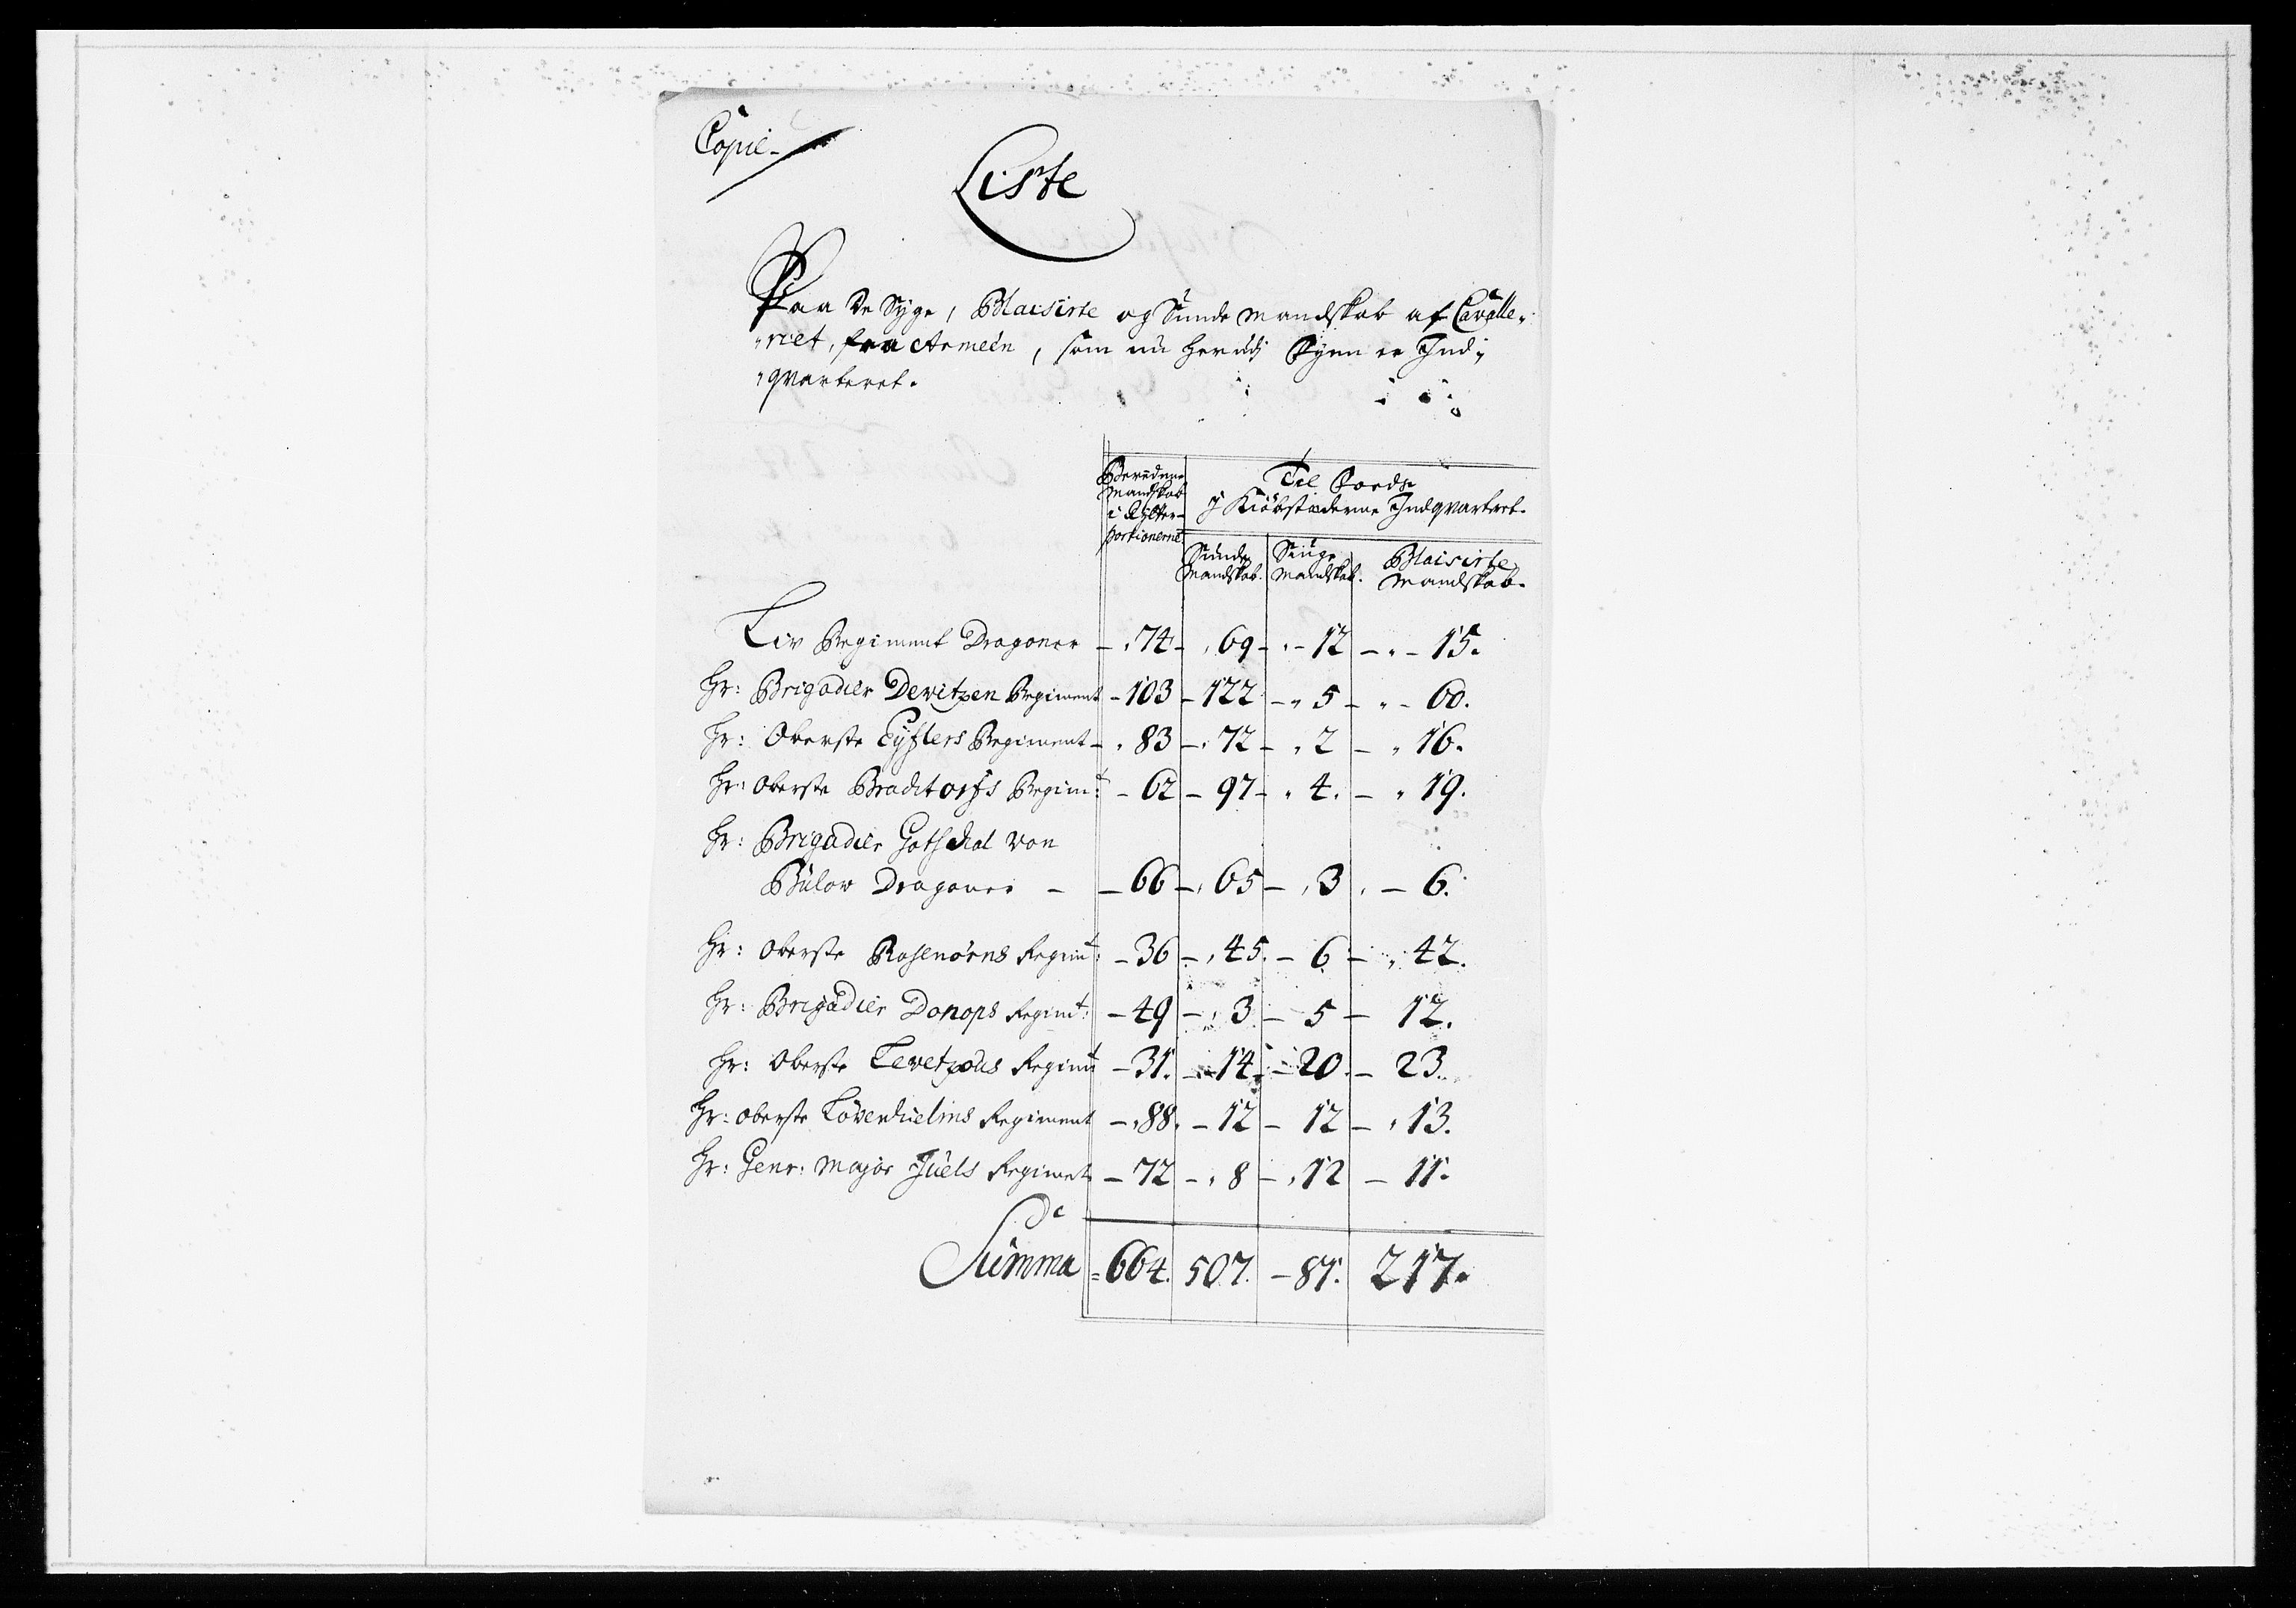 Copie
Liste
Paa de Syge, Blaisirte og Sunde mandskab af Cavalle-
-riet, fra Armeén, som nu herudj Fyen er Ind-
-qvarteret.
Beredene
Mandskab
i Rÿtter-
portionerne
Til Fods
J Kiøbstæderne Indqvarteret.
Sunde
Mandskab.
Siuge
Mandskab.
Blaisirte
Mandskab.
Liv Regiment Dragoner - 74 - 69 - 12 - 15.
Hr: Brigadier Dewitzen Regiment - 103 - 122 - 5 - 60.
Hr: Oberste Eÿflers Regiment - 83 - 72 - 2 - 16.
Hr: Oberste Bradtorfs Regimt: - 62 - 97 - 4. - 19.
Hr: Brigadier Gothskal von
Bülow Dragoner - 66 - 65 - 3 - 6.
Hr: Oberste Rosenörns Regimt: - 36 - 45. - 6 - 42.
Hr: Brigadier Donops Regimt: - 49 - 3 - 5 - 12.
Hr: Oberste Levetzous Regimt - 31. - 14. - 20. - 23.
Hr: Oberste Lövenhielms Regiment - 88. - 12 - 12 - 13.
Hr: Genr: Major Juels Regiment - 72 - 8 - 12 - 11.
Summa = 664. 507. - 81. 217.